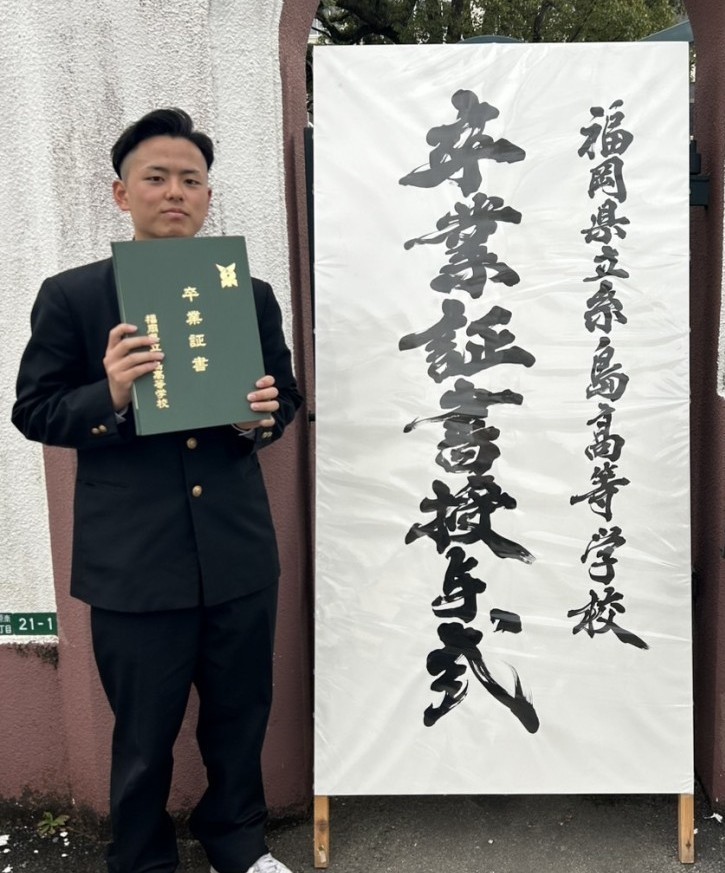 福岡県立糸島高等学校
卒業証書授与式
卒業証書
福岡県立
高等学校
21-1